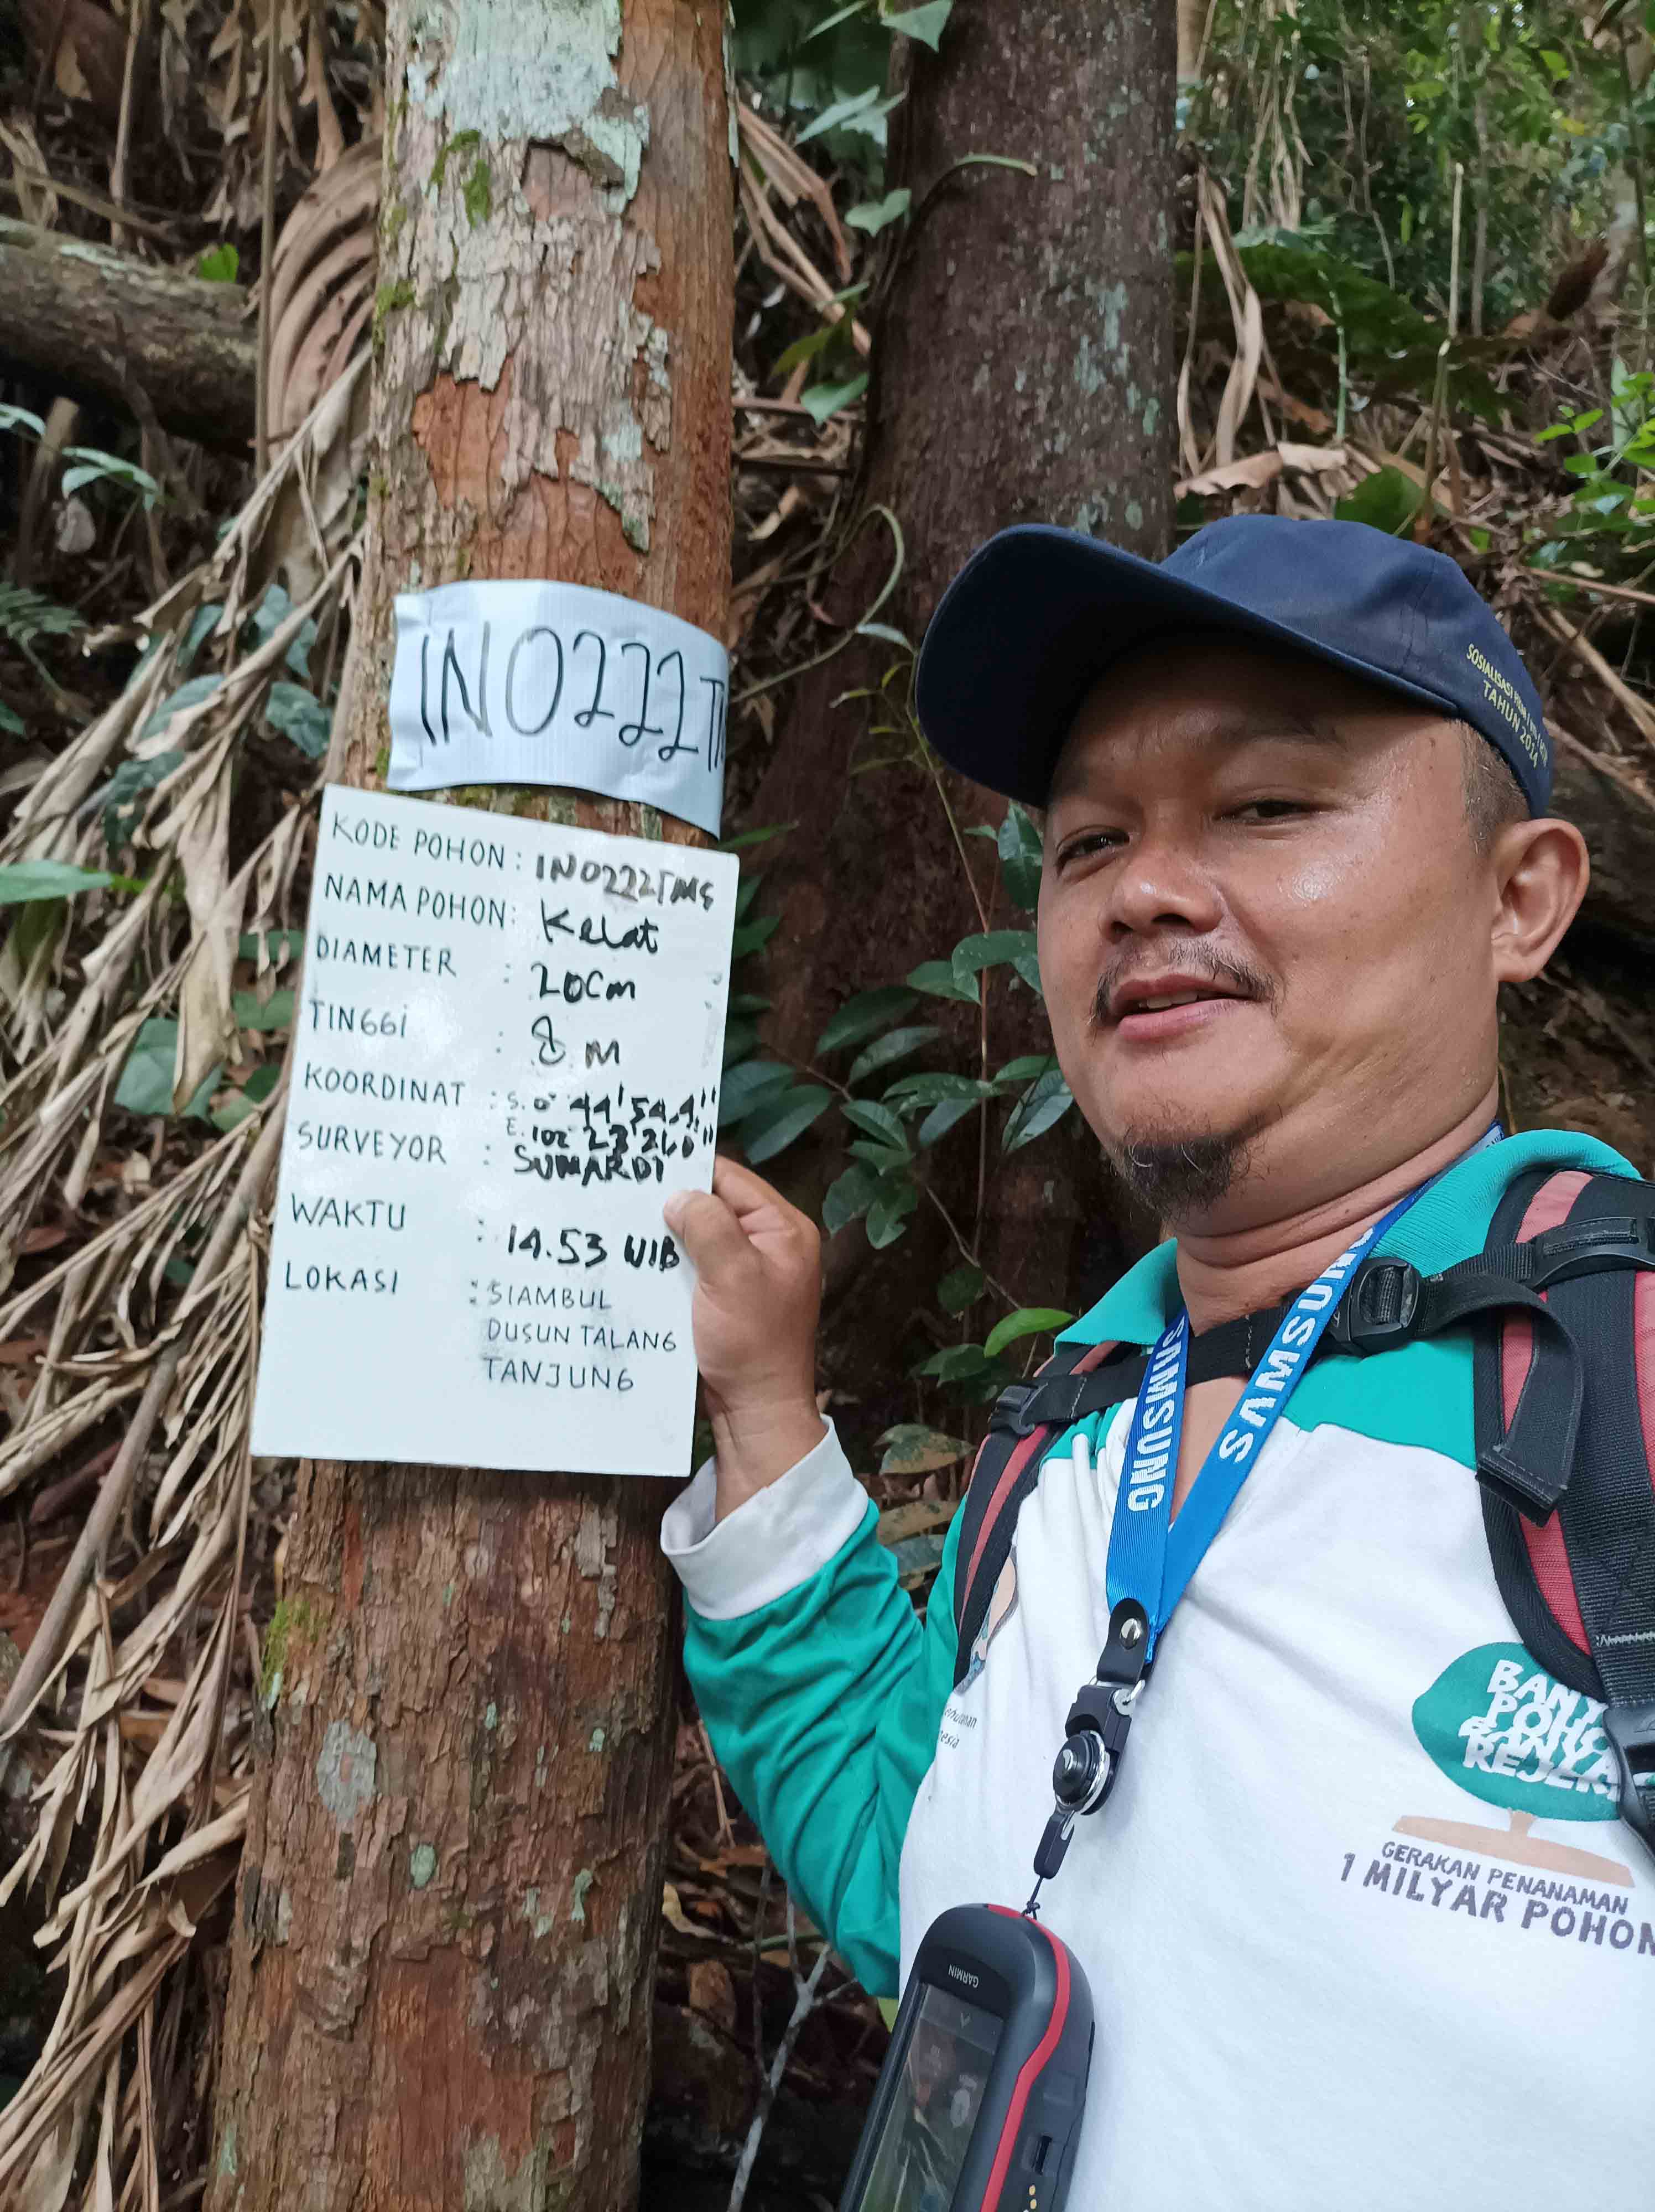 IN0222TM
KODE POHON : IN0222TMS
NAMA POHON : Kelat
DIAMETER : 20Cm
TINGGI : 8 M
KOORDINAT : S. 0° 44' 54.4"
E. 102 23 26.0"
SURVEYOR : SUMARDI
WAKTU : 14.53 WIB
LOKASI : SIAMBUL
DUSUN TALANG
TANJUNG
SOSIALISASI
TAHUN 2014
SAMSUNG
SAMSUNG
BANY
POHO
BANYA
REJEK
GERAKAN PENANAMAN
1 MILYAR POHON
GARMIN